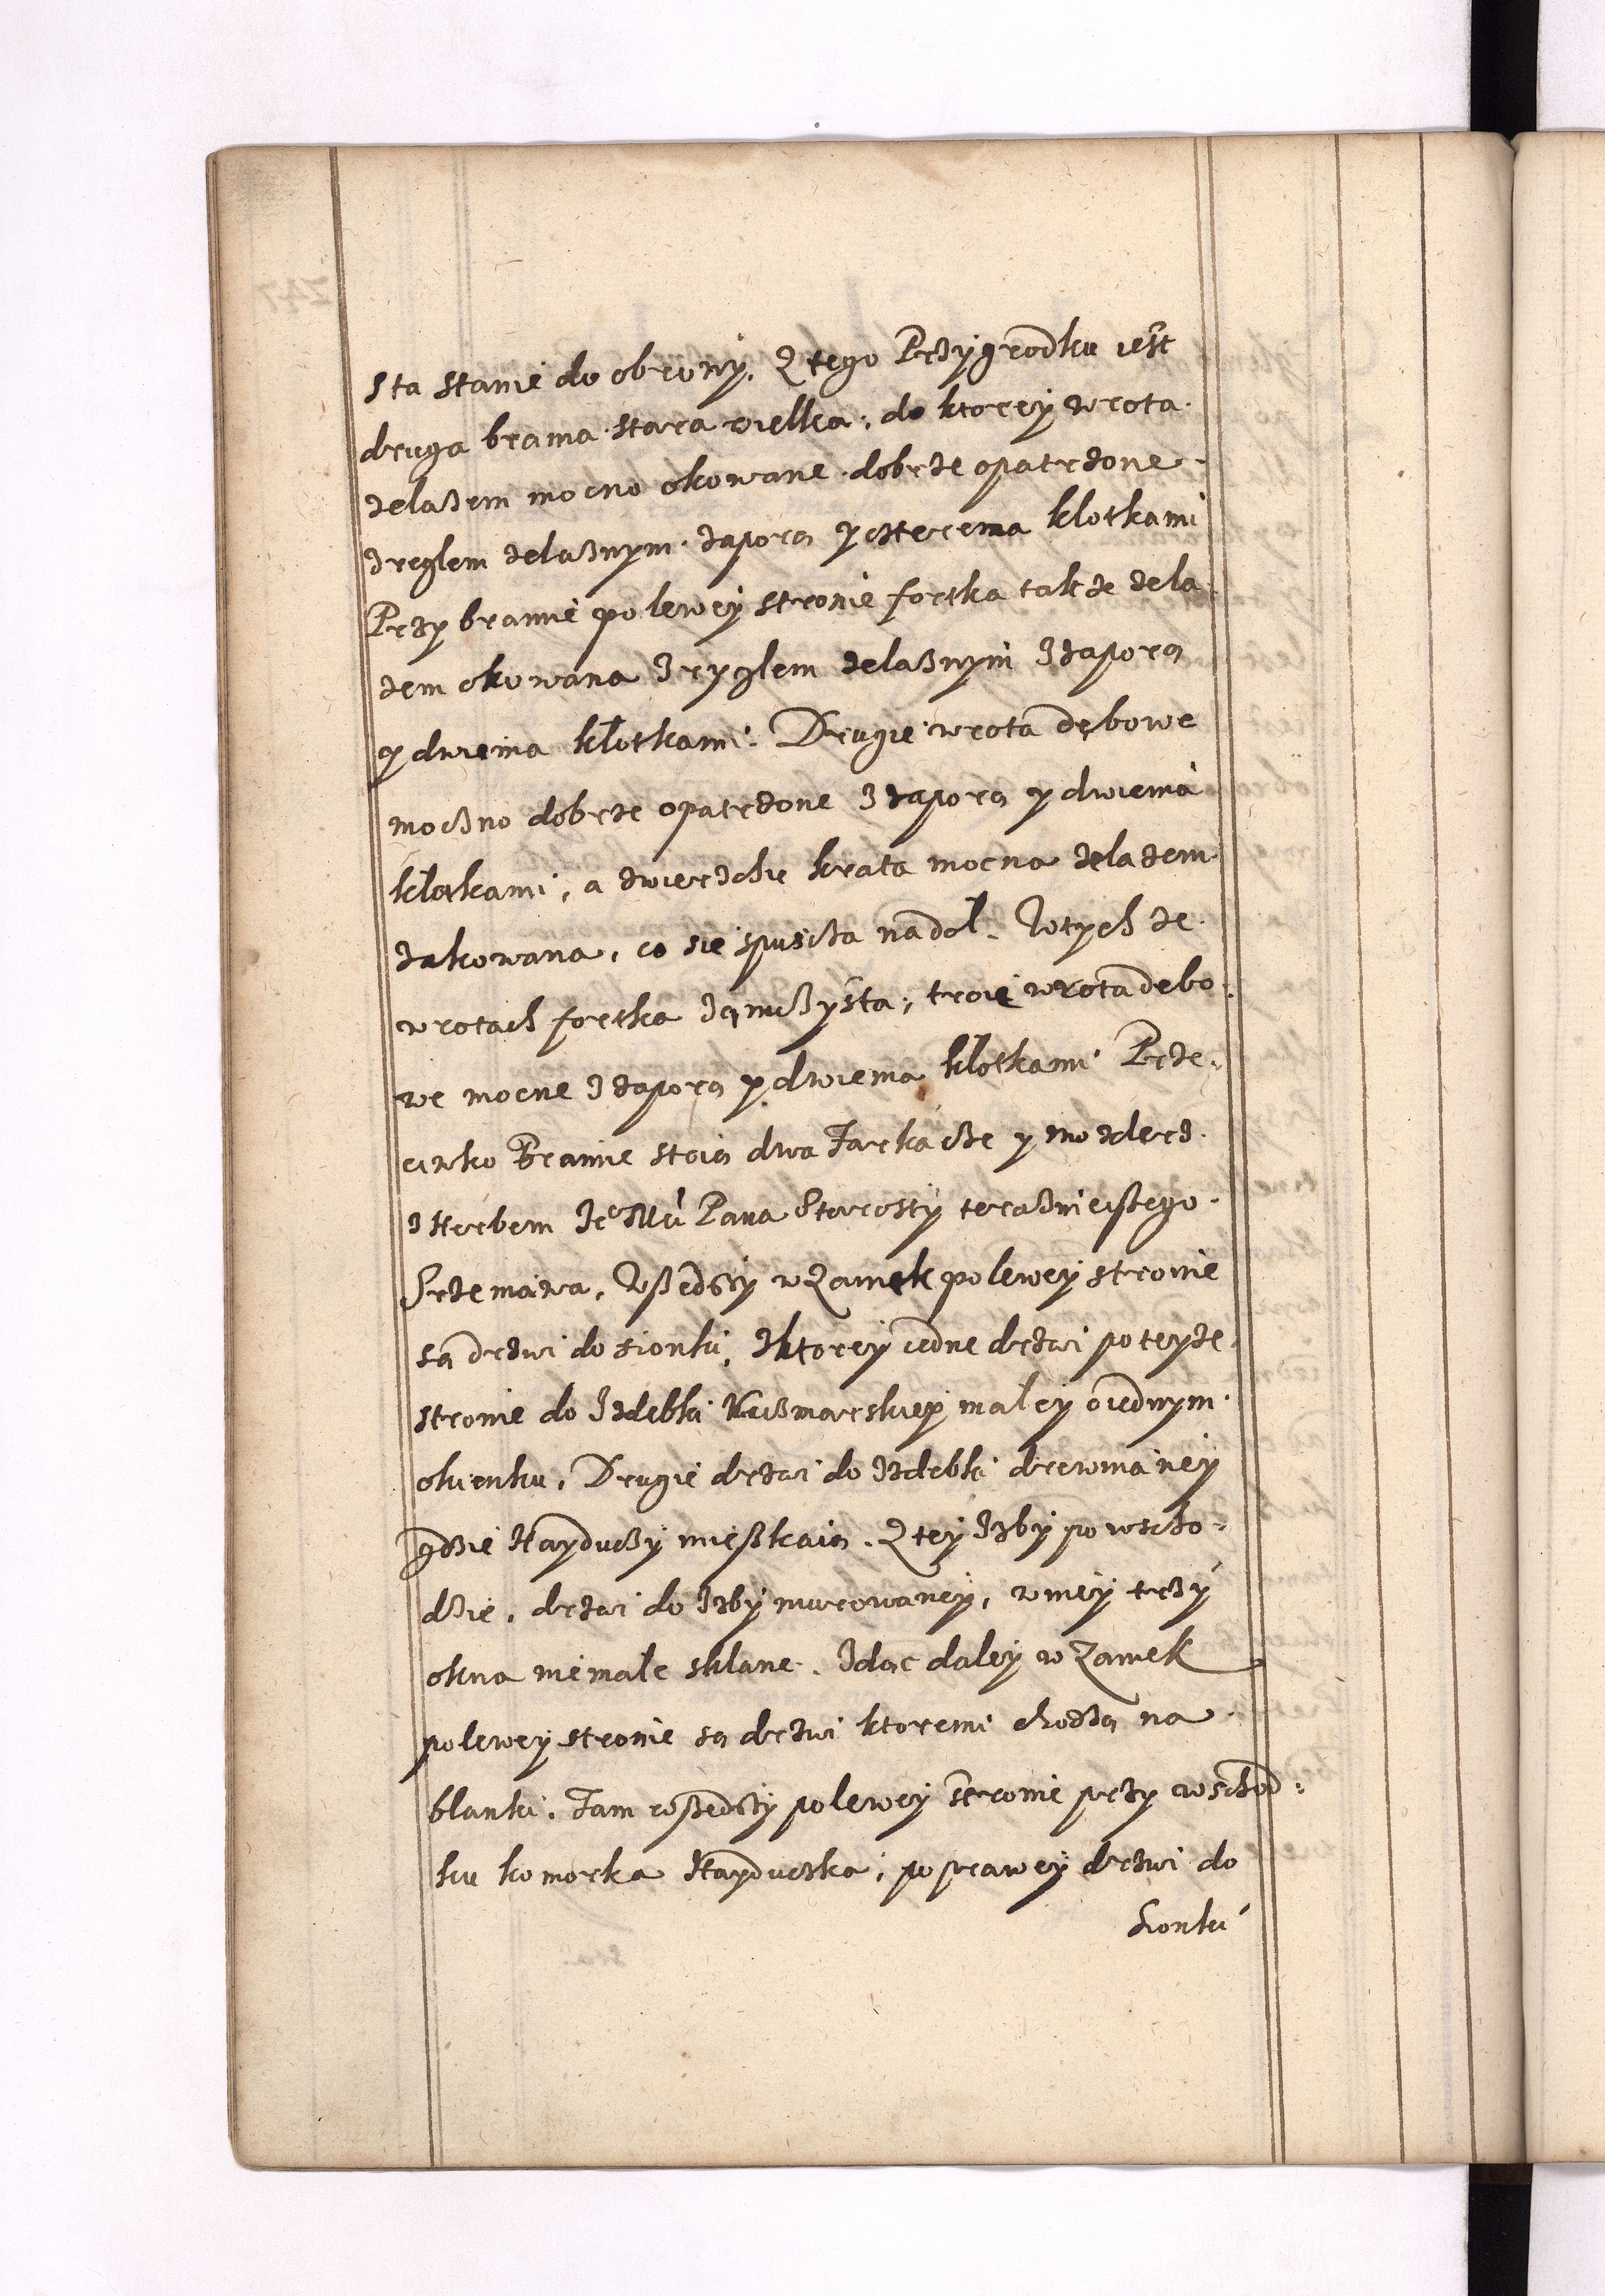 sta stanie do obrony. Z tego Przygrodku iest
druga brama stara wielka, do ktorey wrota
zelazem mocno okowane dobrze opatrzone
z reglem zelaznym zaporą y czterema klotkami
Przy bramie po lewey stronie fortka takze zela
zem okowana z ryglem zelaznym z zaporą
y dwiema klotkami. Drugie wrota dębowe
moczno dobrze opatrzone z zaporą y dwiema
klotkami, a zwierzchu krata mocna zelazem
zakowana, co sie spuscza na dol. W tych ze
wrotach fortka zamczysta, troie wrota debo
we mocne z zaporą y dwiema klotkami Prze
ciwko Bramie stoią dwa Tarkacze y mozderz
z Herbem Je Mci Pana Starosty teraznieiszego
Srzeniawa. Wszedszy w Zamek po lewey stronie
są drzwi do sionki, z ktorey iedne drzwi po teyze
stronie do Izdebki Keizmarskiey maley o iednym
okienku. Drugie drzwi do Izdebki drewnianey
gdzie Hayduczy mieszkaią. Z tey Izby po wscho
dzie, drzwi do Izby murowaney, w niey trzy
okna niemale sklane. Idąc daley w Zamek
po lewey stronie są drzwi ktoremi chodzą na
blanki. Tam wszedszy po lewey stronie przy wschod
ku komorka Hayduczka, po prawey drzwi do
Sionki